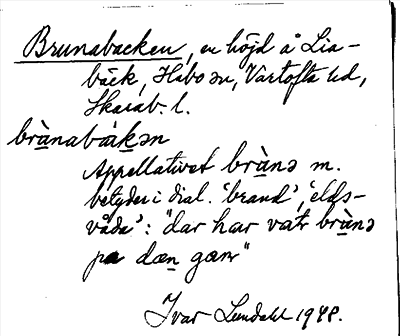 Brunabacken, en höjd å Lia-
bäck, Habo sn, Vartofta hd,
Skarab. l.
brùnabàkən
Appellativet brùnə m.
betyder i dial. 'brand', 'elds-
våda': "dar har vatr brùnə
pa dæn gæn"
Ivar Lundahl 1948.